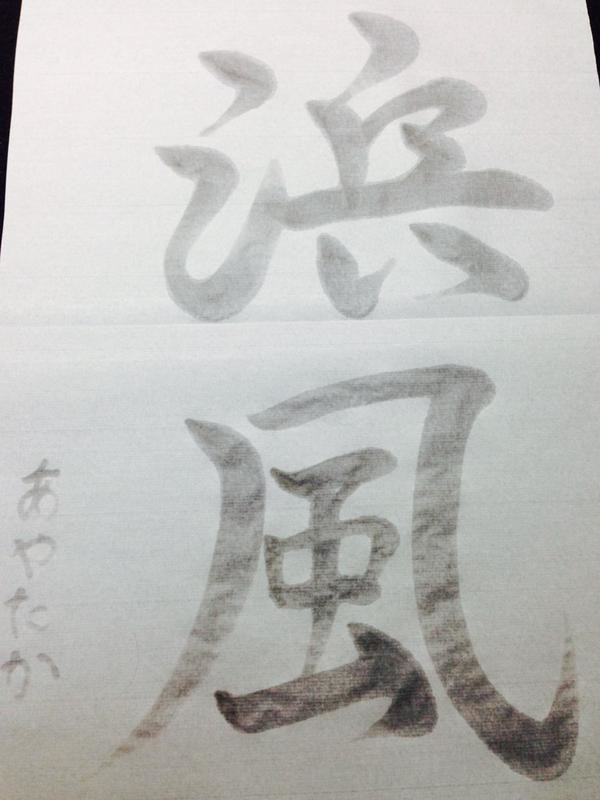 浜風
あやたか